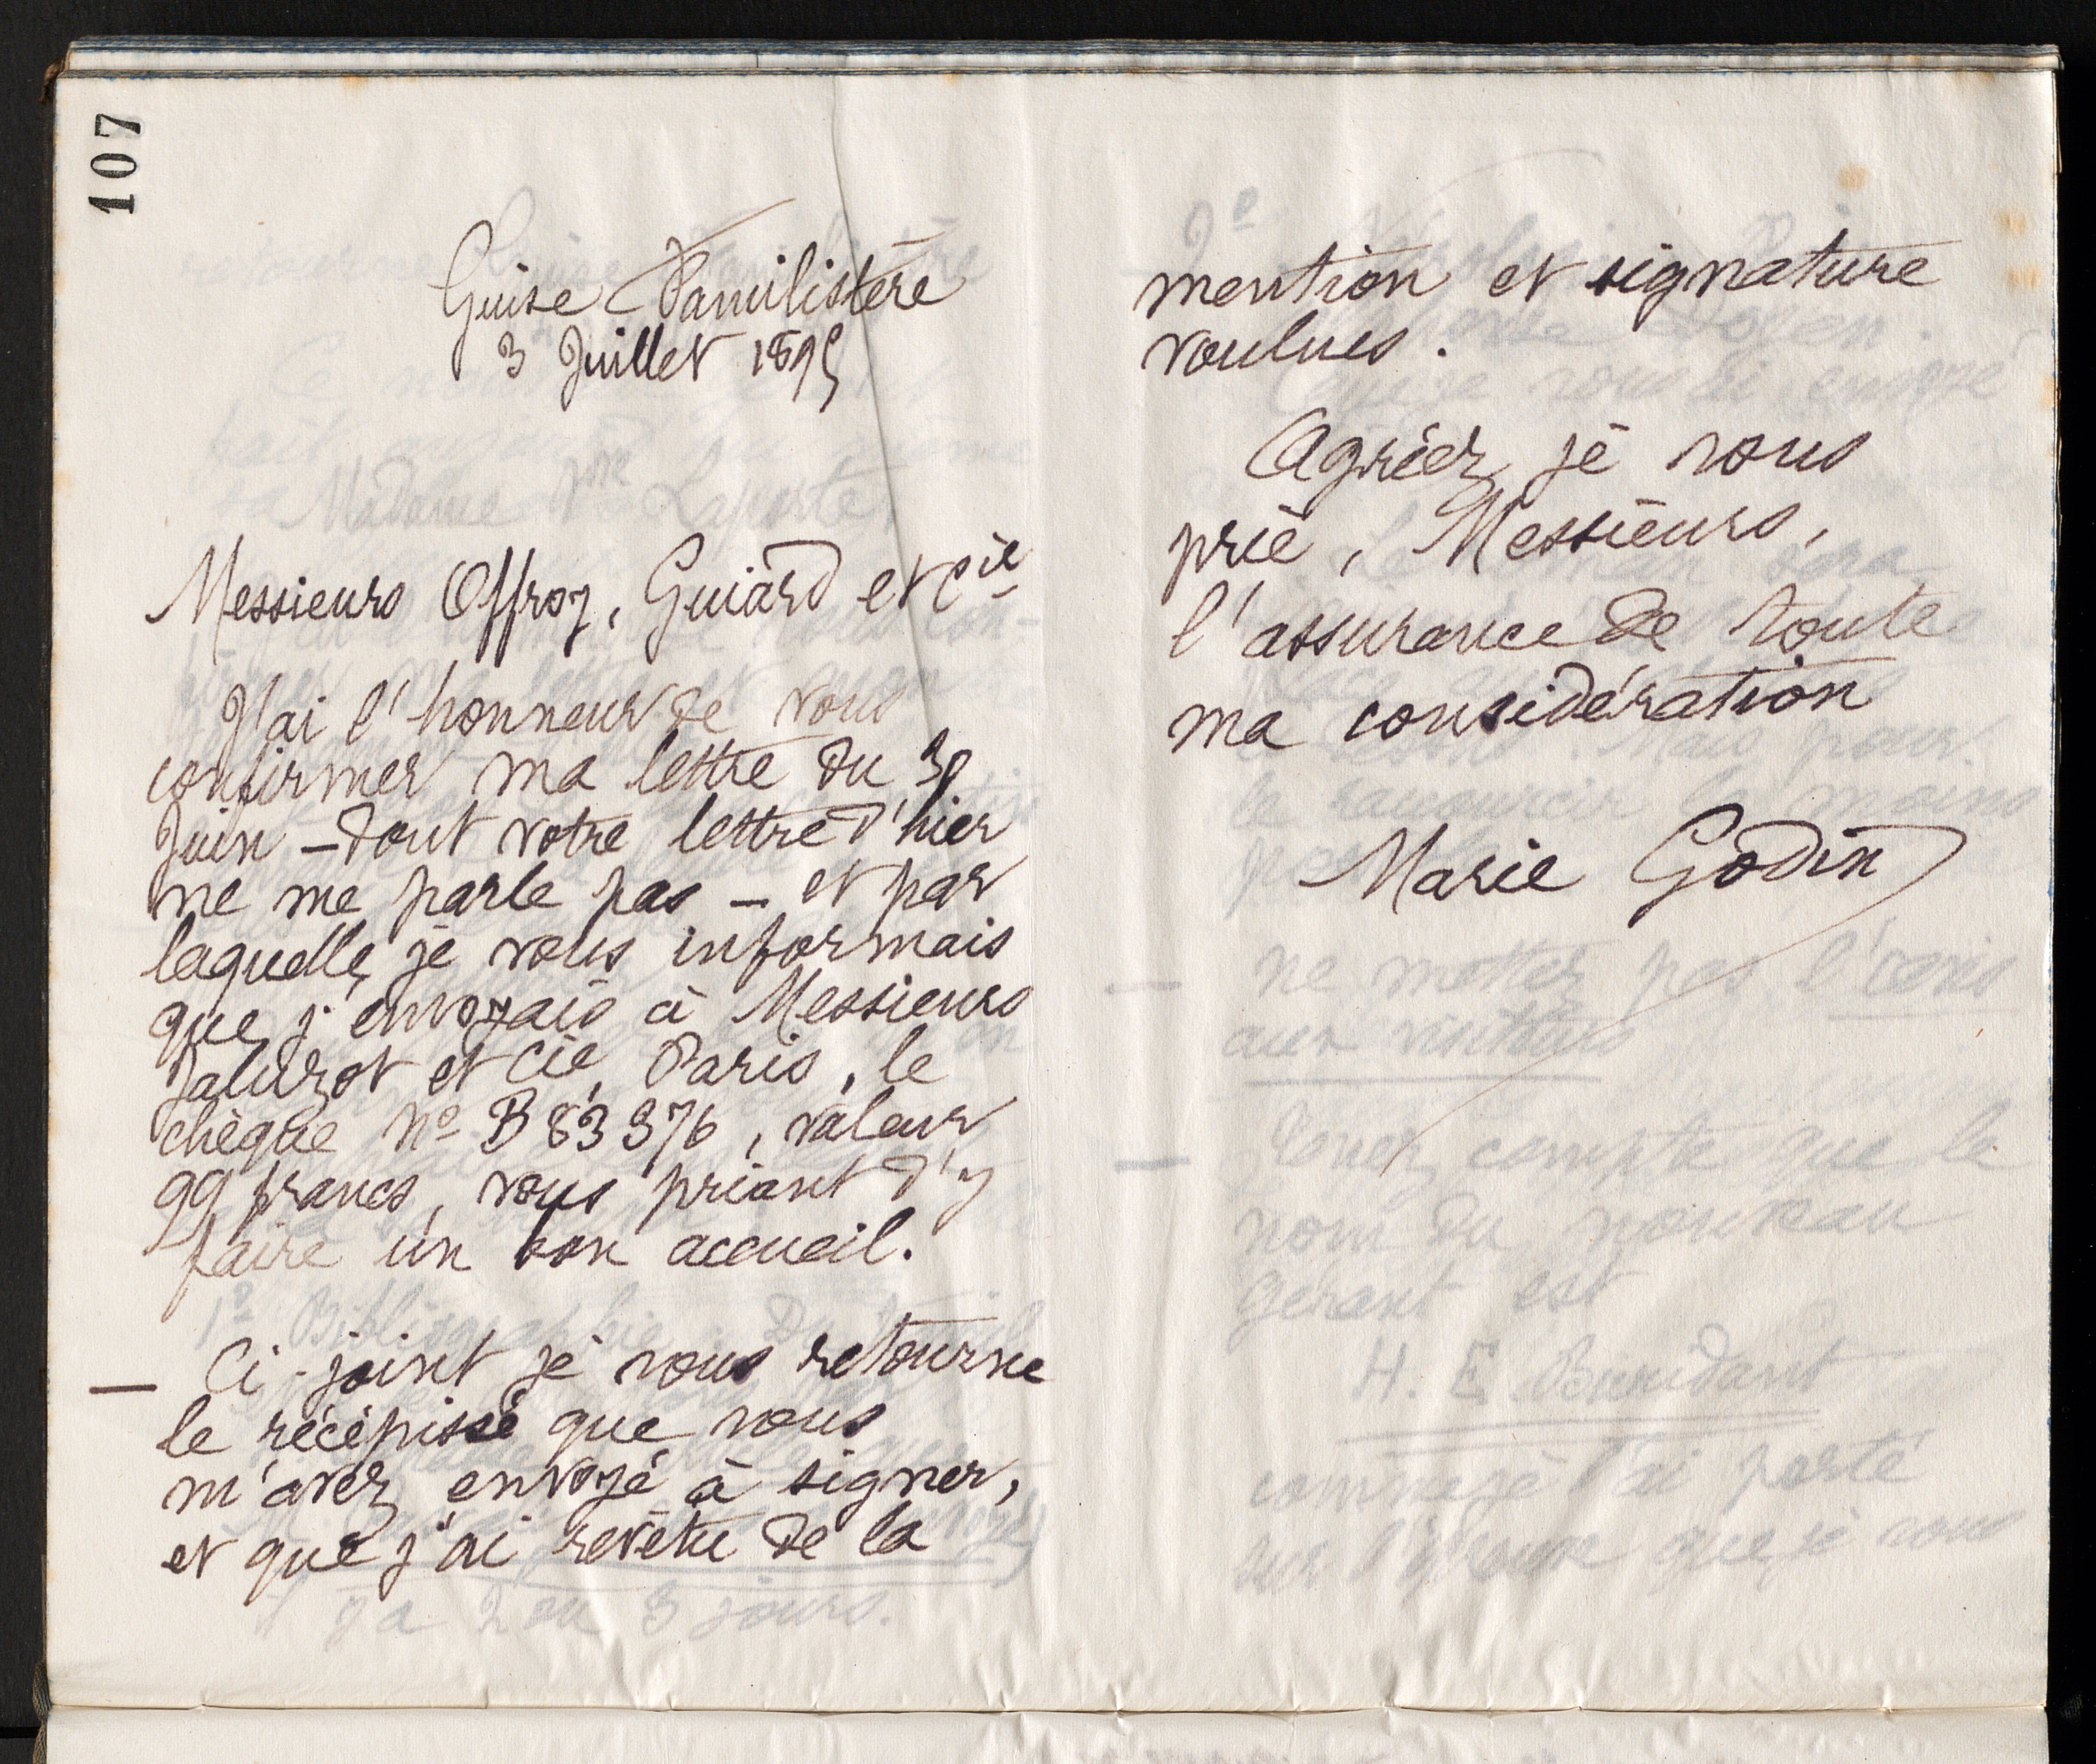 107
Guise Familistère
3 Juillet 1895
Messieurs Offroy, Guiard et Cie
J'ai l'honneur de vous
confirmer ma lettre du 30
Juin – dont votre lettre d'hier
ne me parle pas – et par
laquelle je vous informais
que j'envoyais à Messieurs
Jaluzot et Cie, Paris, le
chèque No B 83 376, valeur
99 francs, vous priant d'y
faire un bon accueil.
— Ci-joint je vous retourne
le récépissé que vous
m'avez envoyé à signer,
et que j'ai revêtu de la
mention et signature
voulues.
Agréez, je vous
prie, Messieurs,
l'assurance de toute
ma considération
Marie Godin